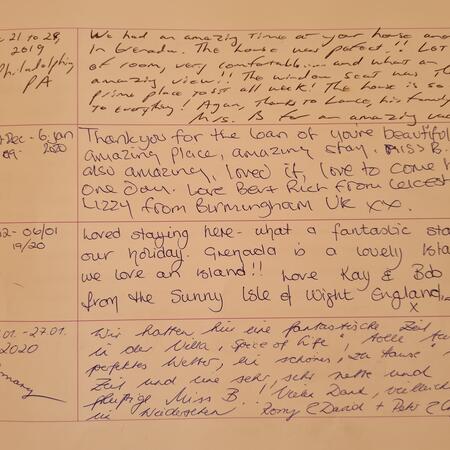 21 to 28,
2019
Philadelphia
PA
We had an amazing time at your house and
in Grenada. The house was perfect!! Lot
of room, very comfortable... and what an
amazing view!! The window seat was the
prime place to sit all week! The house is so
to everything! Again, thanks to Lance, his family
Mrs. B for an amazing
Dec - 6 Jan
2020
Thankyou for the loan of you're beautiful
amazing place, amazing stay. Miss B.
also amazing, loved it, love to come
one day. Love Bev & Rich from Leicest
Lizzy from Birmingham UK xx.
12 - 06/01
19/20
Loved staying here - what a fantastic sta
our holiday. Grenada is a lovely Isla
we love an island!! Love Kay & Bob
from the Sunny Isle of Wight England,
x
01. - 27.01.
2020
many
Wir hatten hier eine fantastische Zeit
in der Villa "Spice of Life", tolle
perfektes Wetter, ein schönes, zu Hause
Zeit und eine sehr, sehr nette und
fleißige Miss B.! Vielen Dank, vielleicht
ein Wiedersehen Romy & David + Petr &